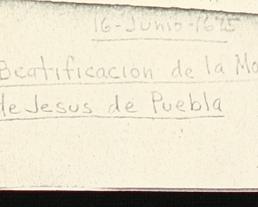 16-Junio-1675
Beatificacion de la Mo
de Jesus de Puebla